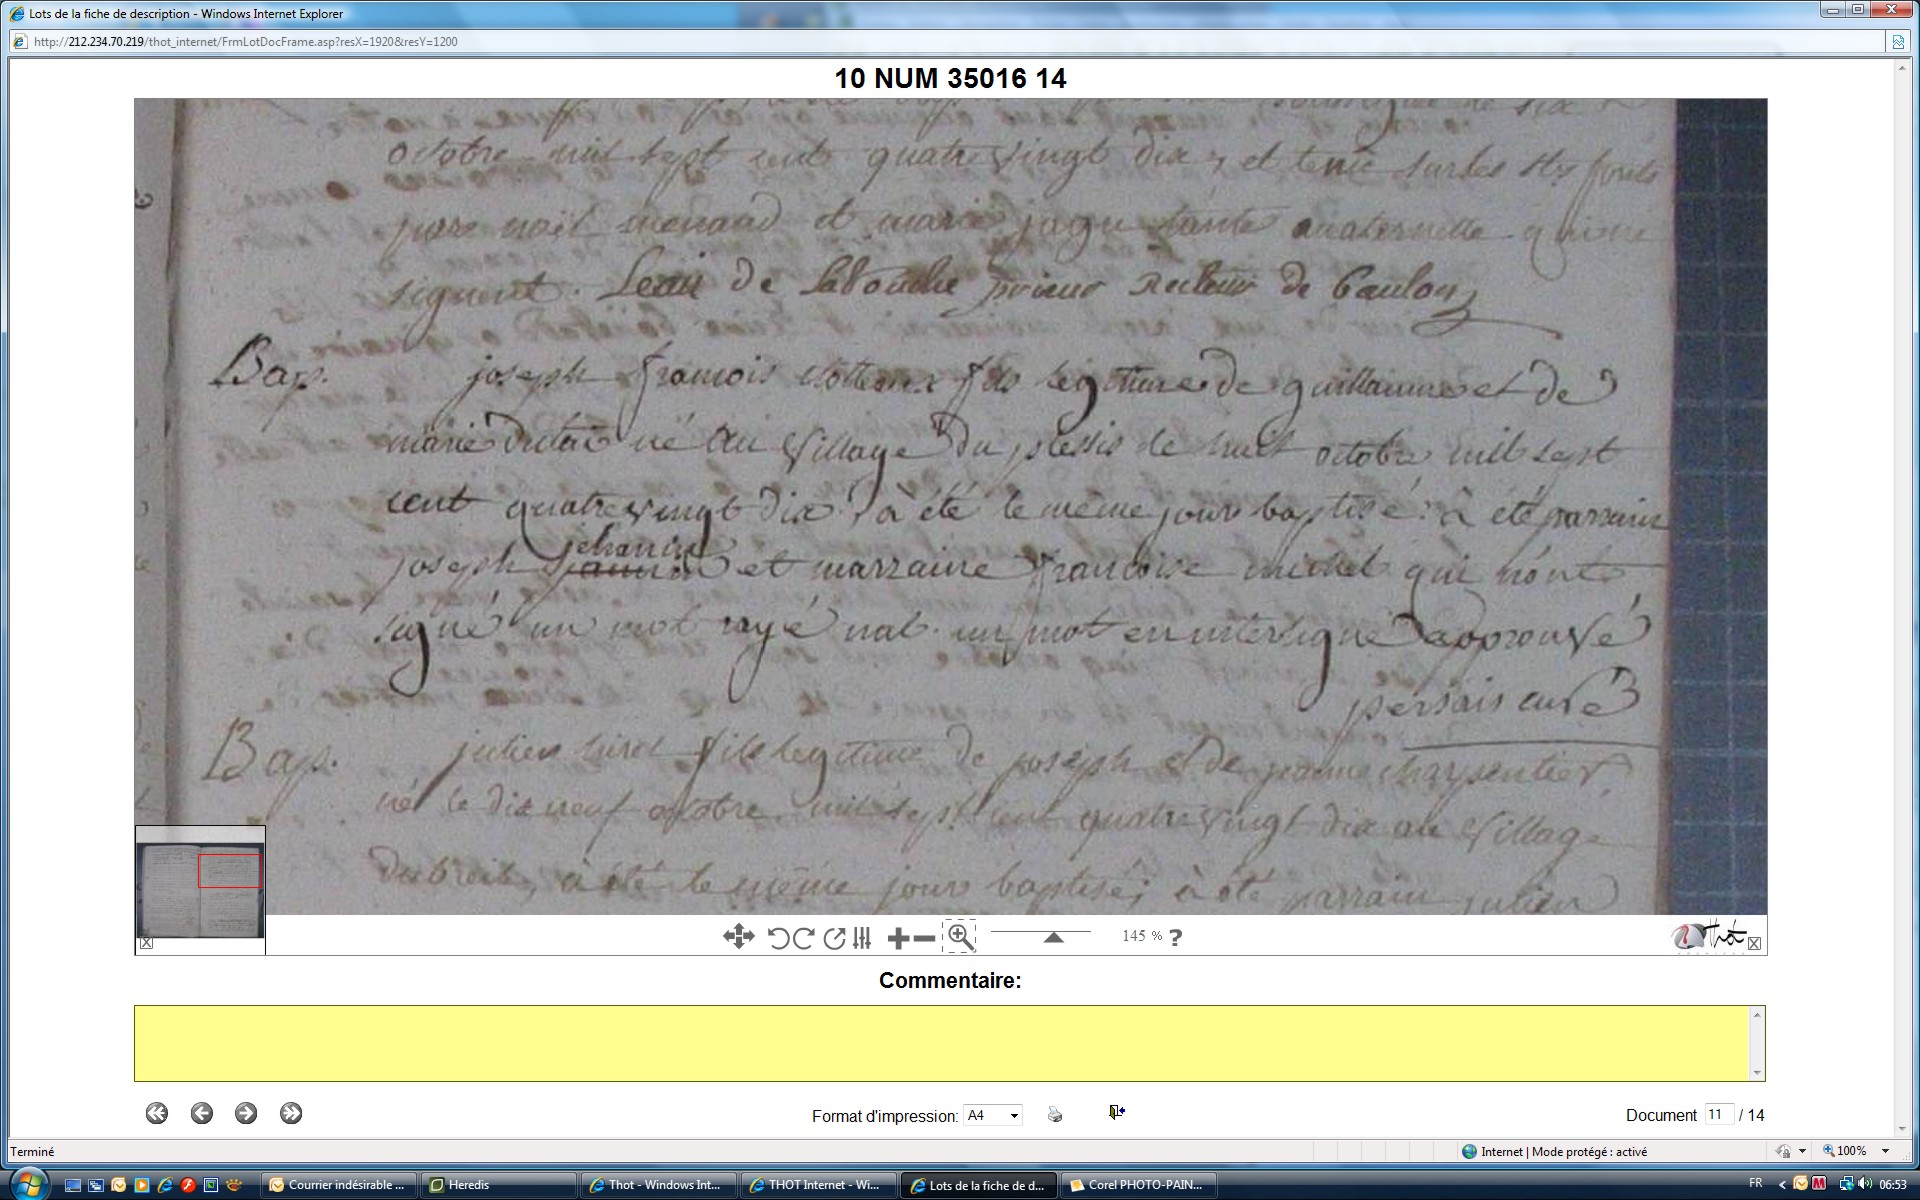 Lots de la fiche de description - Windows Internet Explorer
http://212.234.70.219/thot_internet/FrmLotDocFrame.asp?resX=1920&resY=1200
10 NUM 35016 14
octobre mil sept cent quatre vingt dix, et tenu sur les sts fonts
par noël menard et marie jagu tante maternelle qui ne
signent. de prieur Recteur de Baulon
Bap. joseph francois fils legitime de guillaume et de
marie né au village du plessis le huit octobre mil sept
cent quatre vingt dix, à été le même jour baptisé. à été parrain
jehanin
joseph et marraine francoise michel qui n'ont
signé un mot rayé nul. un mot en interligne approuvé
persais curé
Bap. julien fils legitime de joseph et de jeanne charpentier,
né le dix neuf octobre mil sept cent quatre vingt dix au village
du breil, à été le même jour baptisé; à été parrain julien
145 % ?
Thot
Commentaire:
Format d'impression: A4
Document 11 / 14
Terminé
Internet | Mode protégé : activé
100%
Courrier indésirable ...
Heredis
Thot - Windows Int...
THOT Internet - Wi...
Lots de la fiche de d...
Corel PHOTO-PAIN...
FR
06:53